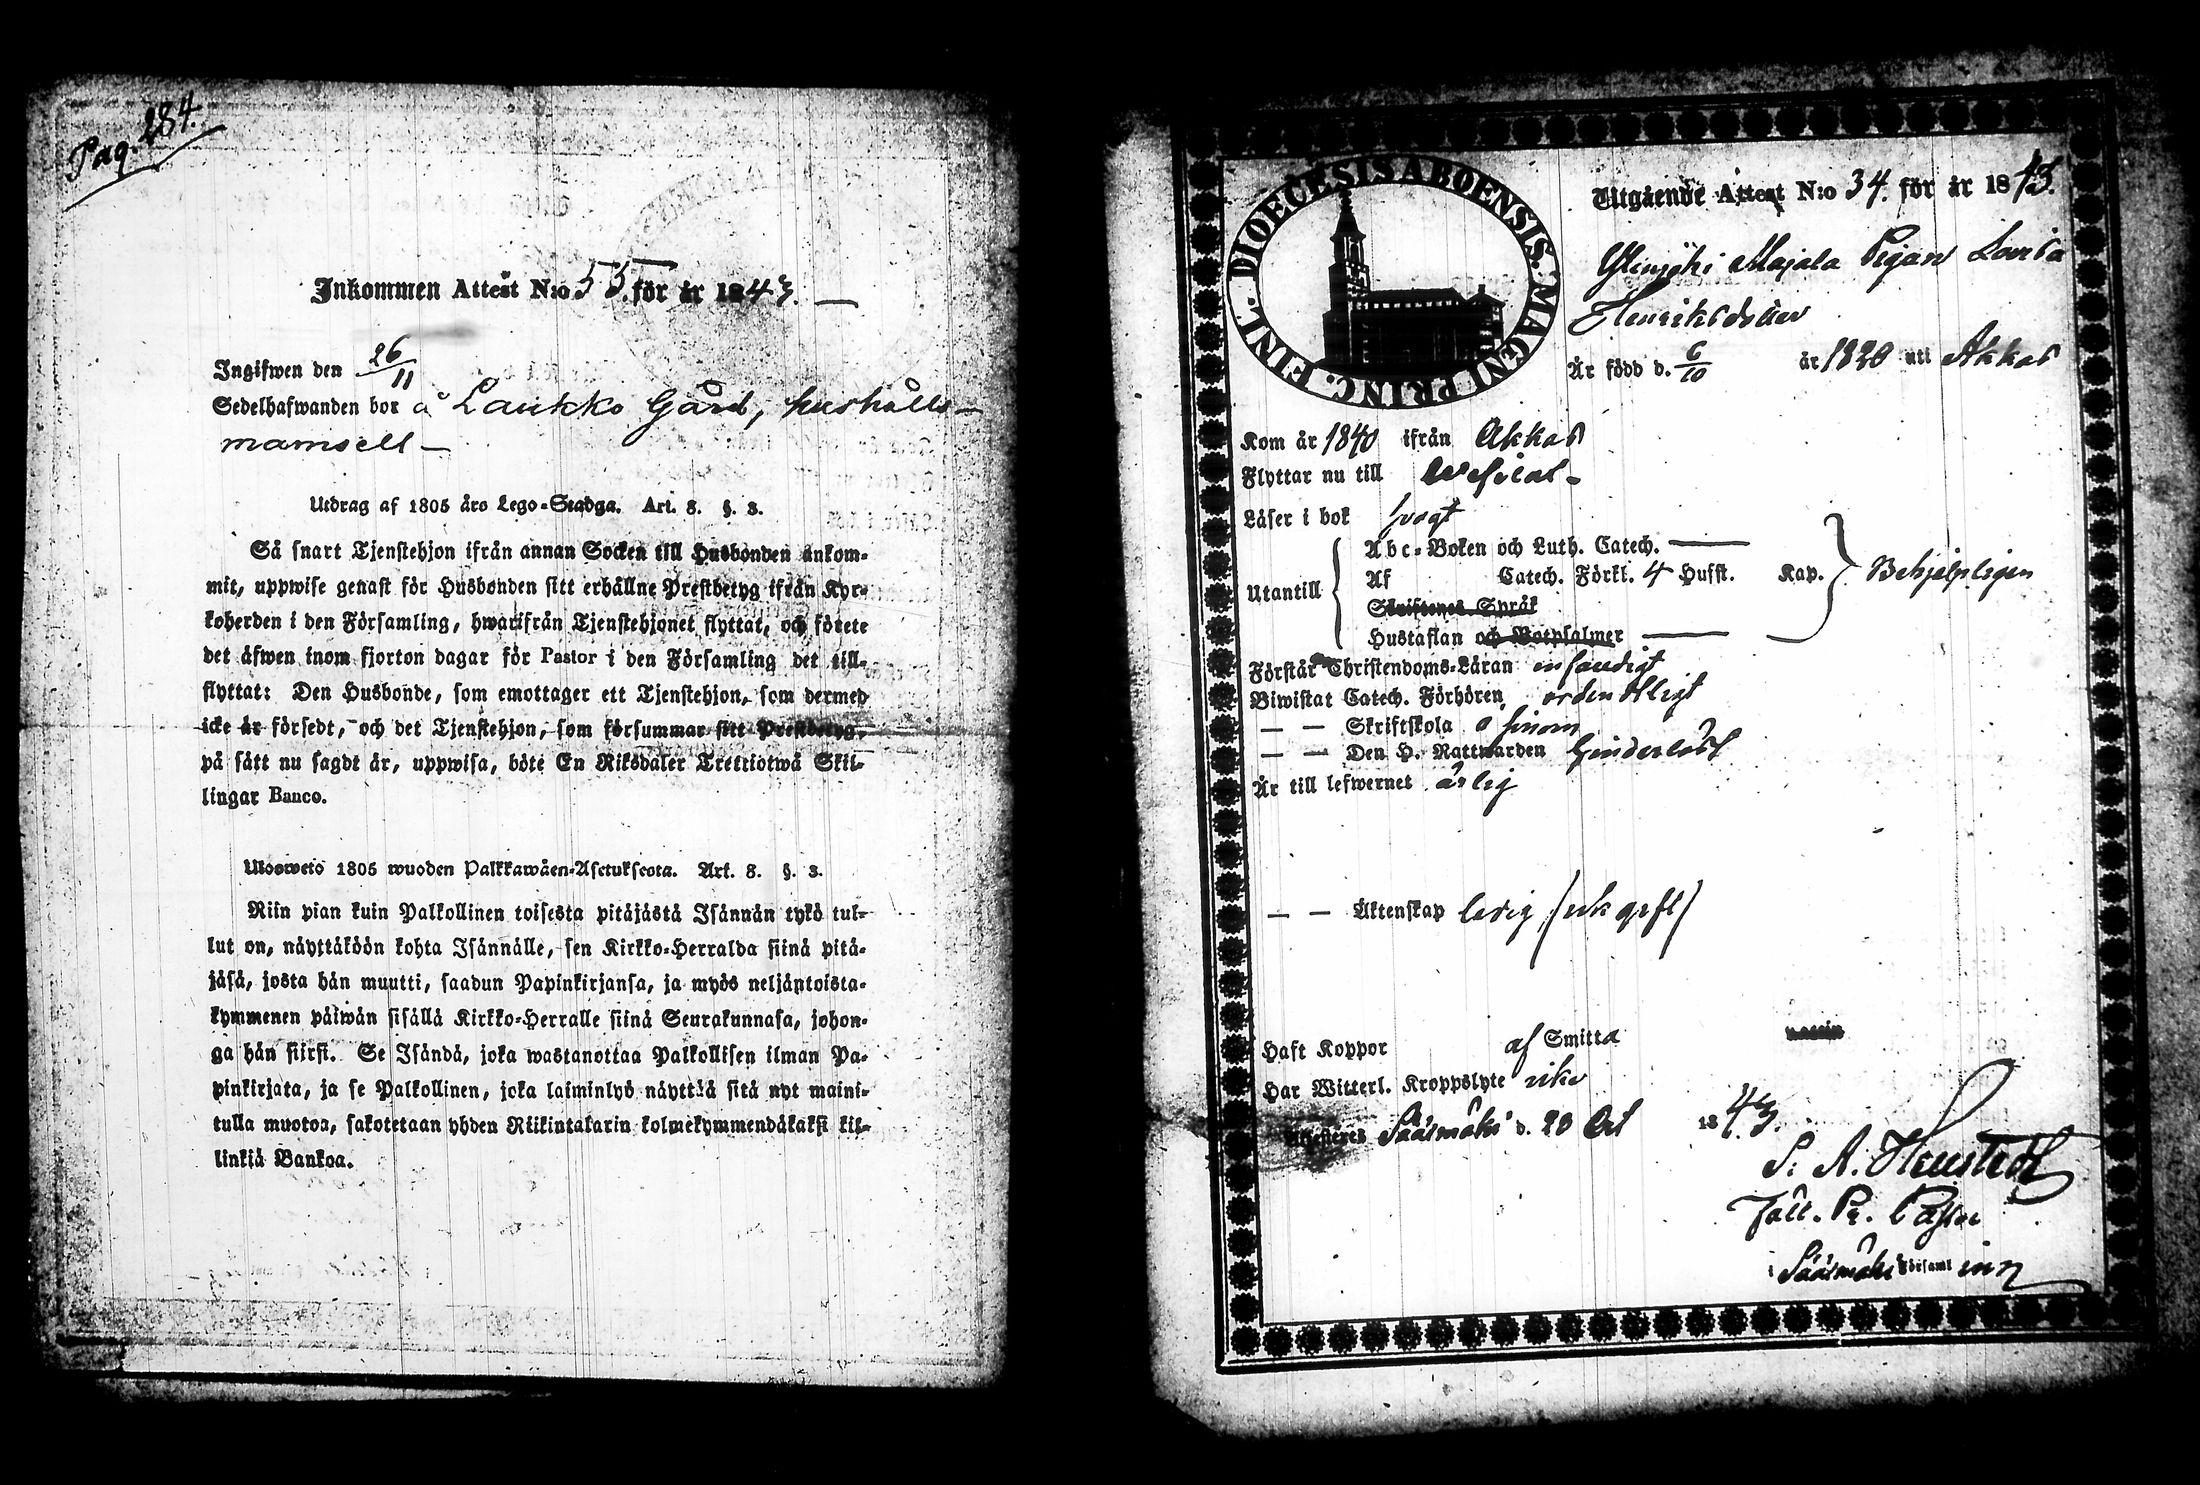 Pag. 284.
Inkommen Attest N:o 55. för år 1843.
Ingifwen den 26/11
Sedelhafwanden bor å Laukko Gård, hushålls-
mamsell —
Utdrag af 1805 års Lego-Stadga. Art. 8. §. 3.
Så snart Tjenstehjon ifrån annan Socken till Husbonden ankom-
mit, uppwise genast för Husbonden sitt erhållne Prestbetyg ifrån Kyr-
koherden i den Församling, hwarifrån Tjenstehjonet flyttat, och förete
det äfwen inom fjorton dagar för Pastor i den Församling det till-
flyttat: Den Husbonde, som emottager ett Tjenstehjon, som dermed
icke är försedt, och det Tjenstehjon, som försummar sitt Prestbetyg,
på sätt nu sagdt är, uppwisa, böte En Riksdaler Trettiotwå Skil-
lingar Banco.
Ulosweto 1805 wuoden Palkkawäen-Asetuksesta. Art. 8. §. 3.
Niin pian kuin Palkollinen toisesta pitäjästä Isännän tykö tul-
lut on, näyttäköön kohta Isännälle, sen Kirkko-Herralda siinä pitä-
jäsä, josta hän muutti, saadun Papinkirjansa, ja myös neljäntoista-
kymmenen päiwän sisällä Kirkko-Herralle siinä Seurakunnasa, johon-
ga hän siirsi. Se Isändä, joka wastanottaa Palkollisen ilman Pa-
pinkirjata, ja se Palkollinen, joka laiminlyö näyttää sitä nyt maini-
tulla muoton, sakotetaan yhden Riikintalarin kolmekymmendäkaksi kil-
linkiä Bankoa.
DIOECESIS ABOENSIS. MAGNI PRINC. FINL.
Utgående Attest N:o 34. för år 1843.
Ylinjöki Majala Pigan Lovisa
Henriksdotter
Är född d. 6/10 år 1820 uti Akkas
Kom år 1840 ifrån Akkas
Flyttar nu till Wesilax
Läser i bok svagt
Abc-Boken och Luth. Catech. —
Utantill Af Catech. Förkl. 4 Hufst. Kap. Behjelpligen
Skriftenes Språk
Hustaflan och Botpsalmer —
Förstår Christendoms-Läran enfaldigt
Biwistat Catech. Förhören ordentligt
— — Skriftskola
— — Den H. Nattwarden
Är till lefwernet ärlig
— — Äktenskap ledig
Haft Koppor af Smitta
Har Witterl. Kroppslyte icke
Attesteres Sääsmäki d. 20 Oct 1843.
Pastor
i Sääsmäki Församl